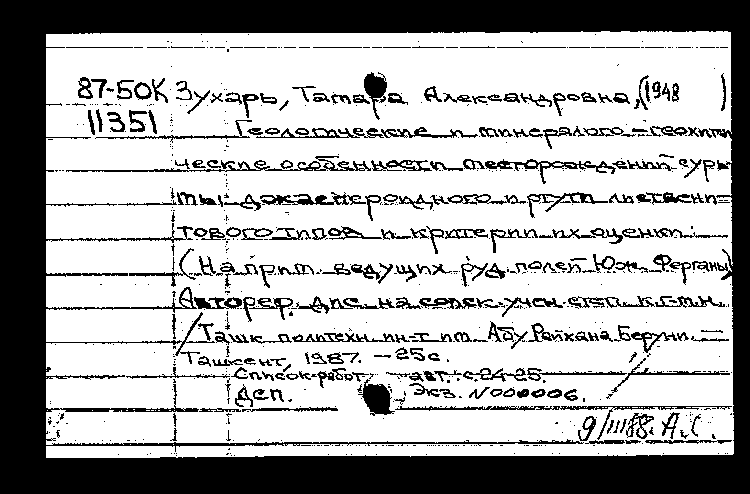 87-50К Зухарь, Тамара Александровна, (1948 )
11351 Геологические и минералого-геохими
ческие особенности месторождений сурь
мы джаспероидного и ртути лиственi=
тового типов и критерии их оценки.
(На прим. ведущих руд. полей Юж. Ферганы)
Автореф. дис. на соиск. учен. степ. к.г.-м.н.
/Ташк. политехн. ин-т им. Абу Райхана Беруни. —
Ташкент, 1987. — 25 с.
Список работ авт.: с. 24-25.
ДСП. Экз. N000006.
9/III88. А.С.